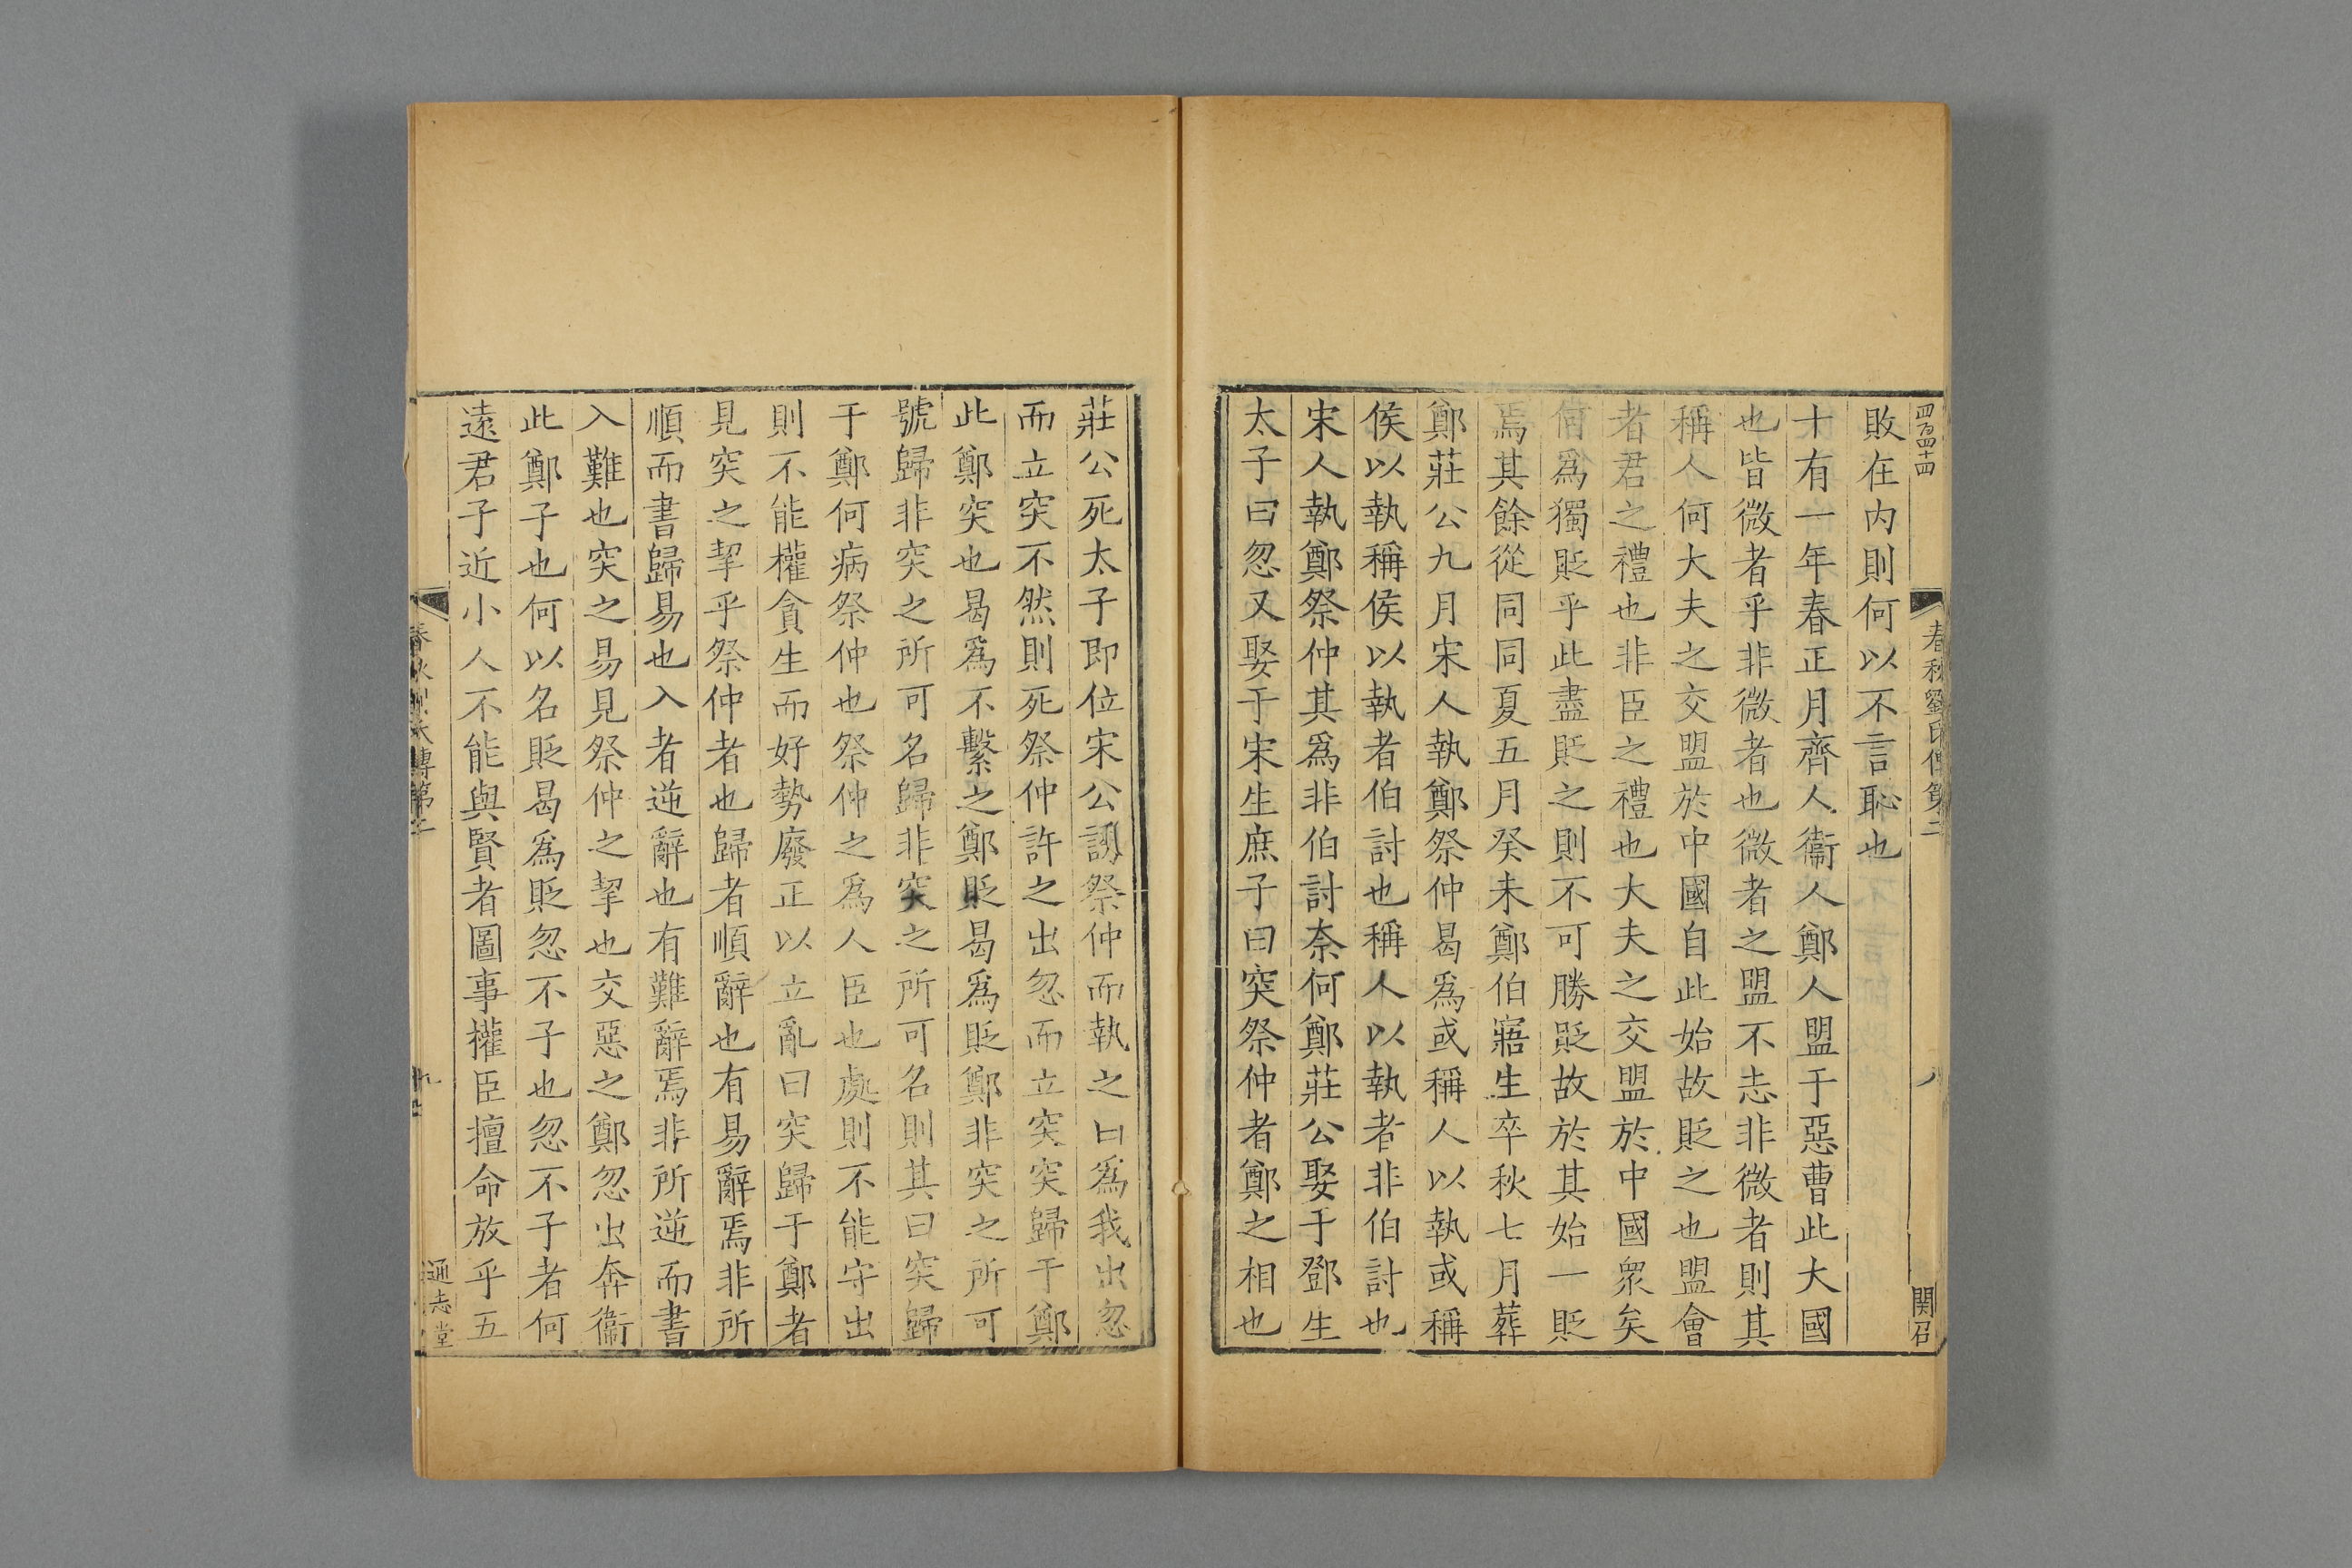 四百四十四
春秋劉氏傳第二
八
関召
敗在内則何以不言恥也
十有一年春正月齊人衞人鄭人盟于惡曹此大國
也皆微者乎非微者也微者之盟不志非微者則其
稱人何大夫之交盟於中國自此始故貶之也盟會
者君之禮也非臣之禮也大夫之交盟於中國衆矣
何爲獨貶乎此盡貶之則不可勝貶故於其始一貶
焉其餘從同同夏五月癸未鄭伯寤生卒秋七月葬
鄭莊公九月宋人執鄭祭仲曷爲或稱人以執或稱
侯以執稱侯以執者伯討也稱人以執者非伯討也
宋人執鄭祭仲其爲非伯討柰何鄭莊公娶于鄧生
太子曰忽又娶于宋生庶子曰突祭仲者鄭之相也
莊公死太子即位宋公誘祭仲而執之曰爲我出忽
而立突不然則死祭仲許之出忽而立突突歸于鄭
此鄭突也曷爲不繫之鄭貶曷爲貶鄭非突之所可
號歸非突之所可名歸非突之所可名則其曰突歸
于鄭何病祭仲也祭仲之爲人臣也處則不能守出
則不能權貪生而好勢廢正以立亂曰突歸于鄭者
見突之挈乎祭仲者也歸者順辭也有易辭焉非所
順而書歸易也入者逆辭也有難辭焉非所逆而書
入難也突之易見祭仲之挈也交惡之鄭忽出奔衞
此鄭子也何以名貶曷爲貶忽不子也忽不子者何
遠君子近小人不能與賢者圖事權臣擅命放乎五
春秋劉氏傳第二
九
通志堂